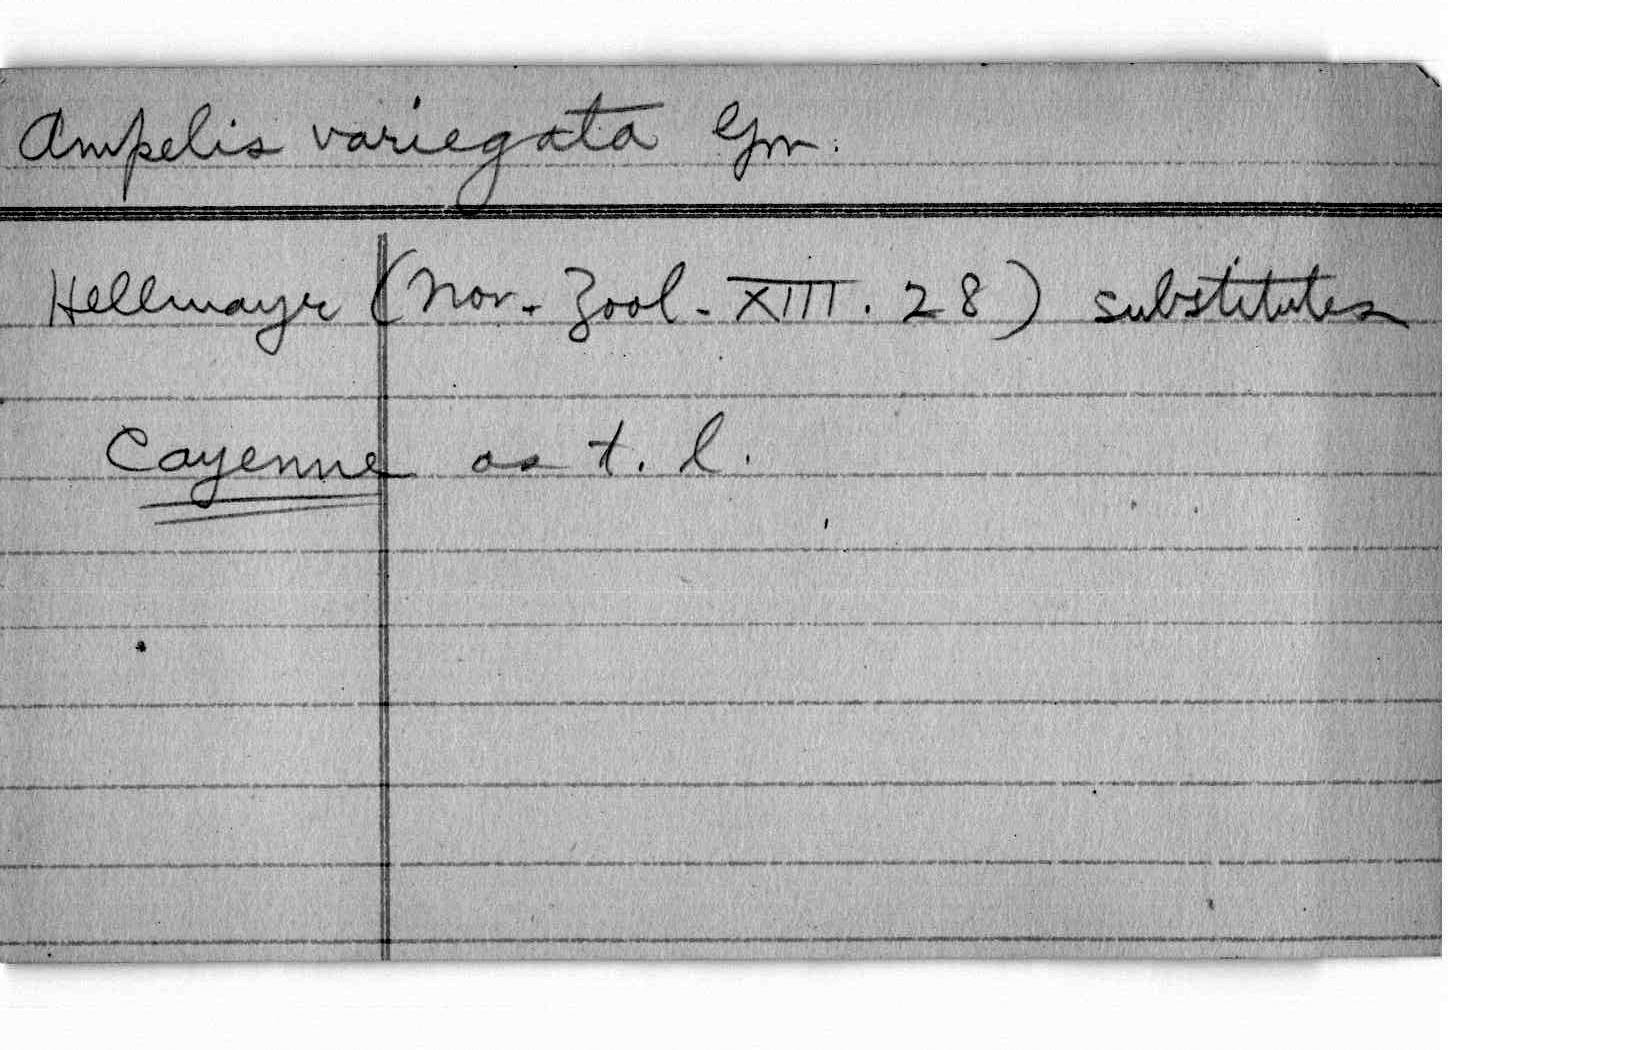 Ampelis variegata Gm.
Hellmayr (Nov. Zool. XIII. 28) substitutes
Cayenne as t. l.